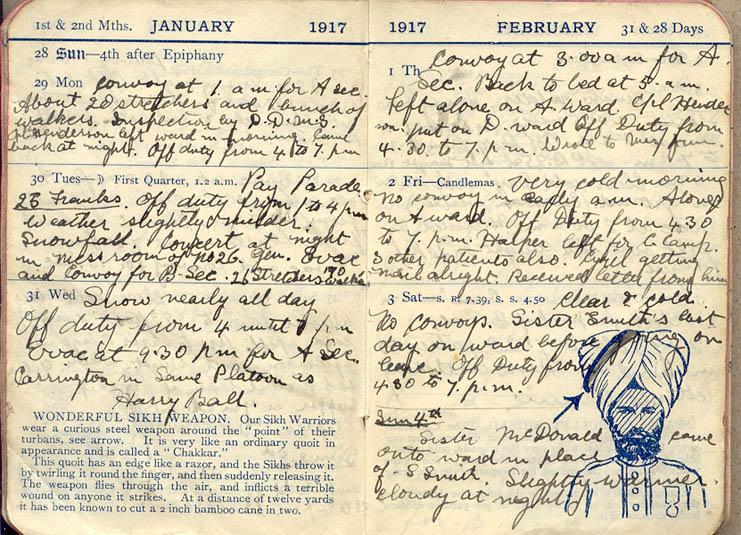 1st & 2nd Mths. JANUARY 1917
28 Sun—4th after Epiphany
29 Mon Convoy at 1 a.m. for A sec.
About 20 stretchers and bunch of
walkers. Inspection by D.D.M.S
Henderson left ward in morning. Came
back at night. Off duty from 4 to 7. pm
30 Tues—☽ First Quarter, 1.2 a.m. Pay Parade
25 Franks. Off duty from 1 to 4 pm
Weather slightly milder.
Snowfall. Concert at night
in mess room of No 26. Gen. Evac
and Convoy for B-Sec. 26 Stretchers 190
31 Wed Snow nearly all day
Off duty from 4 until pm
Evac at 9.30 pm for A Sec.
Carrington in Same Platoon as
Harry Ball.
WONDERFUL SIKH WEAPON. Our Sikh Warriors
wear a curious steel weapon around the "point" of their
turbans, see arrow. It is very like an ordinary quoit in
appearance and is called a "Chakkar."
This quoit has an edge like a razor, and the Sikhs throw it
by twirling it round the finger, and then suddenly releasing it.
The weapon flies through the air, and inflicts a terrible
wound on anyone it strikes. At a distance of twelve yards
it has been known to cut a 2 inch bamboo cane in two.
1917 FEBRUARY 31 & 28 Days
1 Th Convoy at 3.00 a m for A
Sec. Back to bed at 5. a.m.
Left alone on A. Ward. Cpl Hender
son. put on D. ward Off Duty from
4.30 to 7. p m. Wrote to
2 Fri—Candlemas. Very cold morning
No convoy in early a.m. Alone
on A ward. Off Duty from 4.30
to 7. p.m. Harper left for C. Camp.
3 other patients also. Cyril getting
mail alright. Received letter from him
3 Sat—S. R. 7.39, S. S. 4.50 Clear & cold.
No convoys. Sister Smith's last
day on ward before going on
leave. Off Duty from
4 30 to 7. p.m.
Sun 4th
Sister McDonald came
onto ward in place
of S Smith. Slightly warmer.
cloudy at night